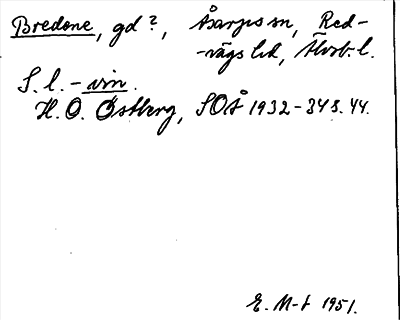 Bredene, gd?, Åsarps sn, Red-
-vägs hd, Älvsb. l.
S. l. - vin.
H. O. Östberg, SOÅ 1932-343. 44.
E. M-t 1951.